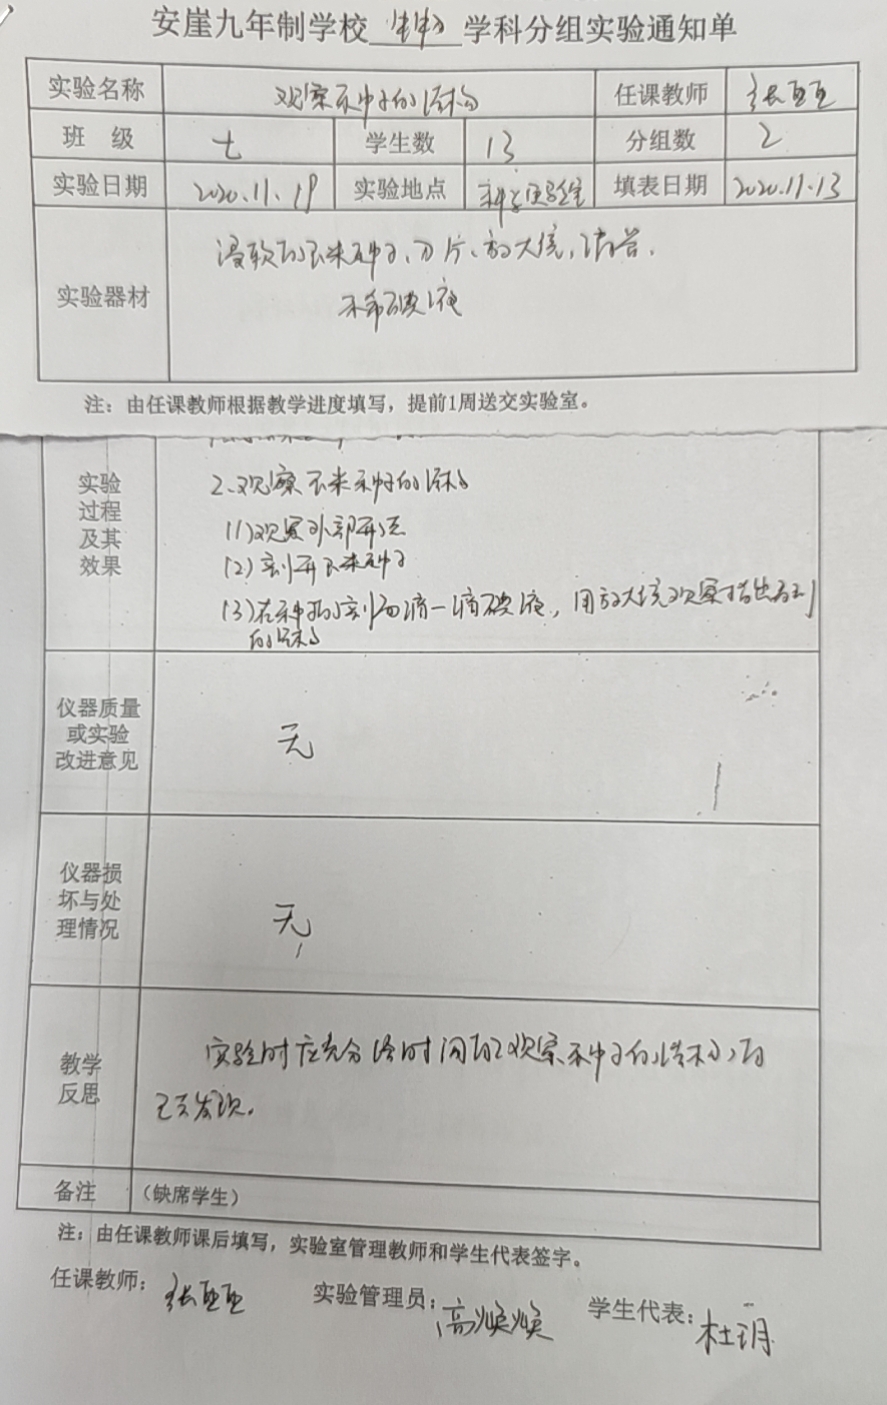 安崖九年制学校 生物 学科分组实验通知单
实验名称 观察种子的结构 任课教师 张亚亚
班 级 七 学生数 13 分组数 2
实验日期 2020.11.19 实验地点 科学实验室 填表日期 2020.11.13
浸软的玉米种子、刀片、放大镜、滴管、
实验器材
稀碘液
注：由任课教师根据教学进度填写，提前1周送交实验室。
实验
过程
及其
效果
2、观察玉米种子的结构
(1)观察外部形态
(2)剖开玉米种子
(3)在种子的剖面滴一滴碘液，用放大镜观察指出看到
的结构
仪器质量
或实验
改进意见
无
仪器损
坏与处
理情况
无
教学
反思
实验时应充分给时间观察种子的结构，
发现。
备注 （缺席学生）
注：由任课教师课后填写，实验室管理教师和学生代表签字。
任课教师：张亚亚 实验管理员：高焕焕 学生代表：杜玥